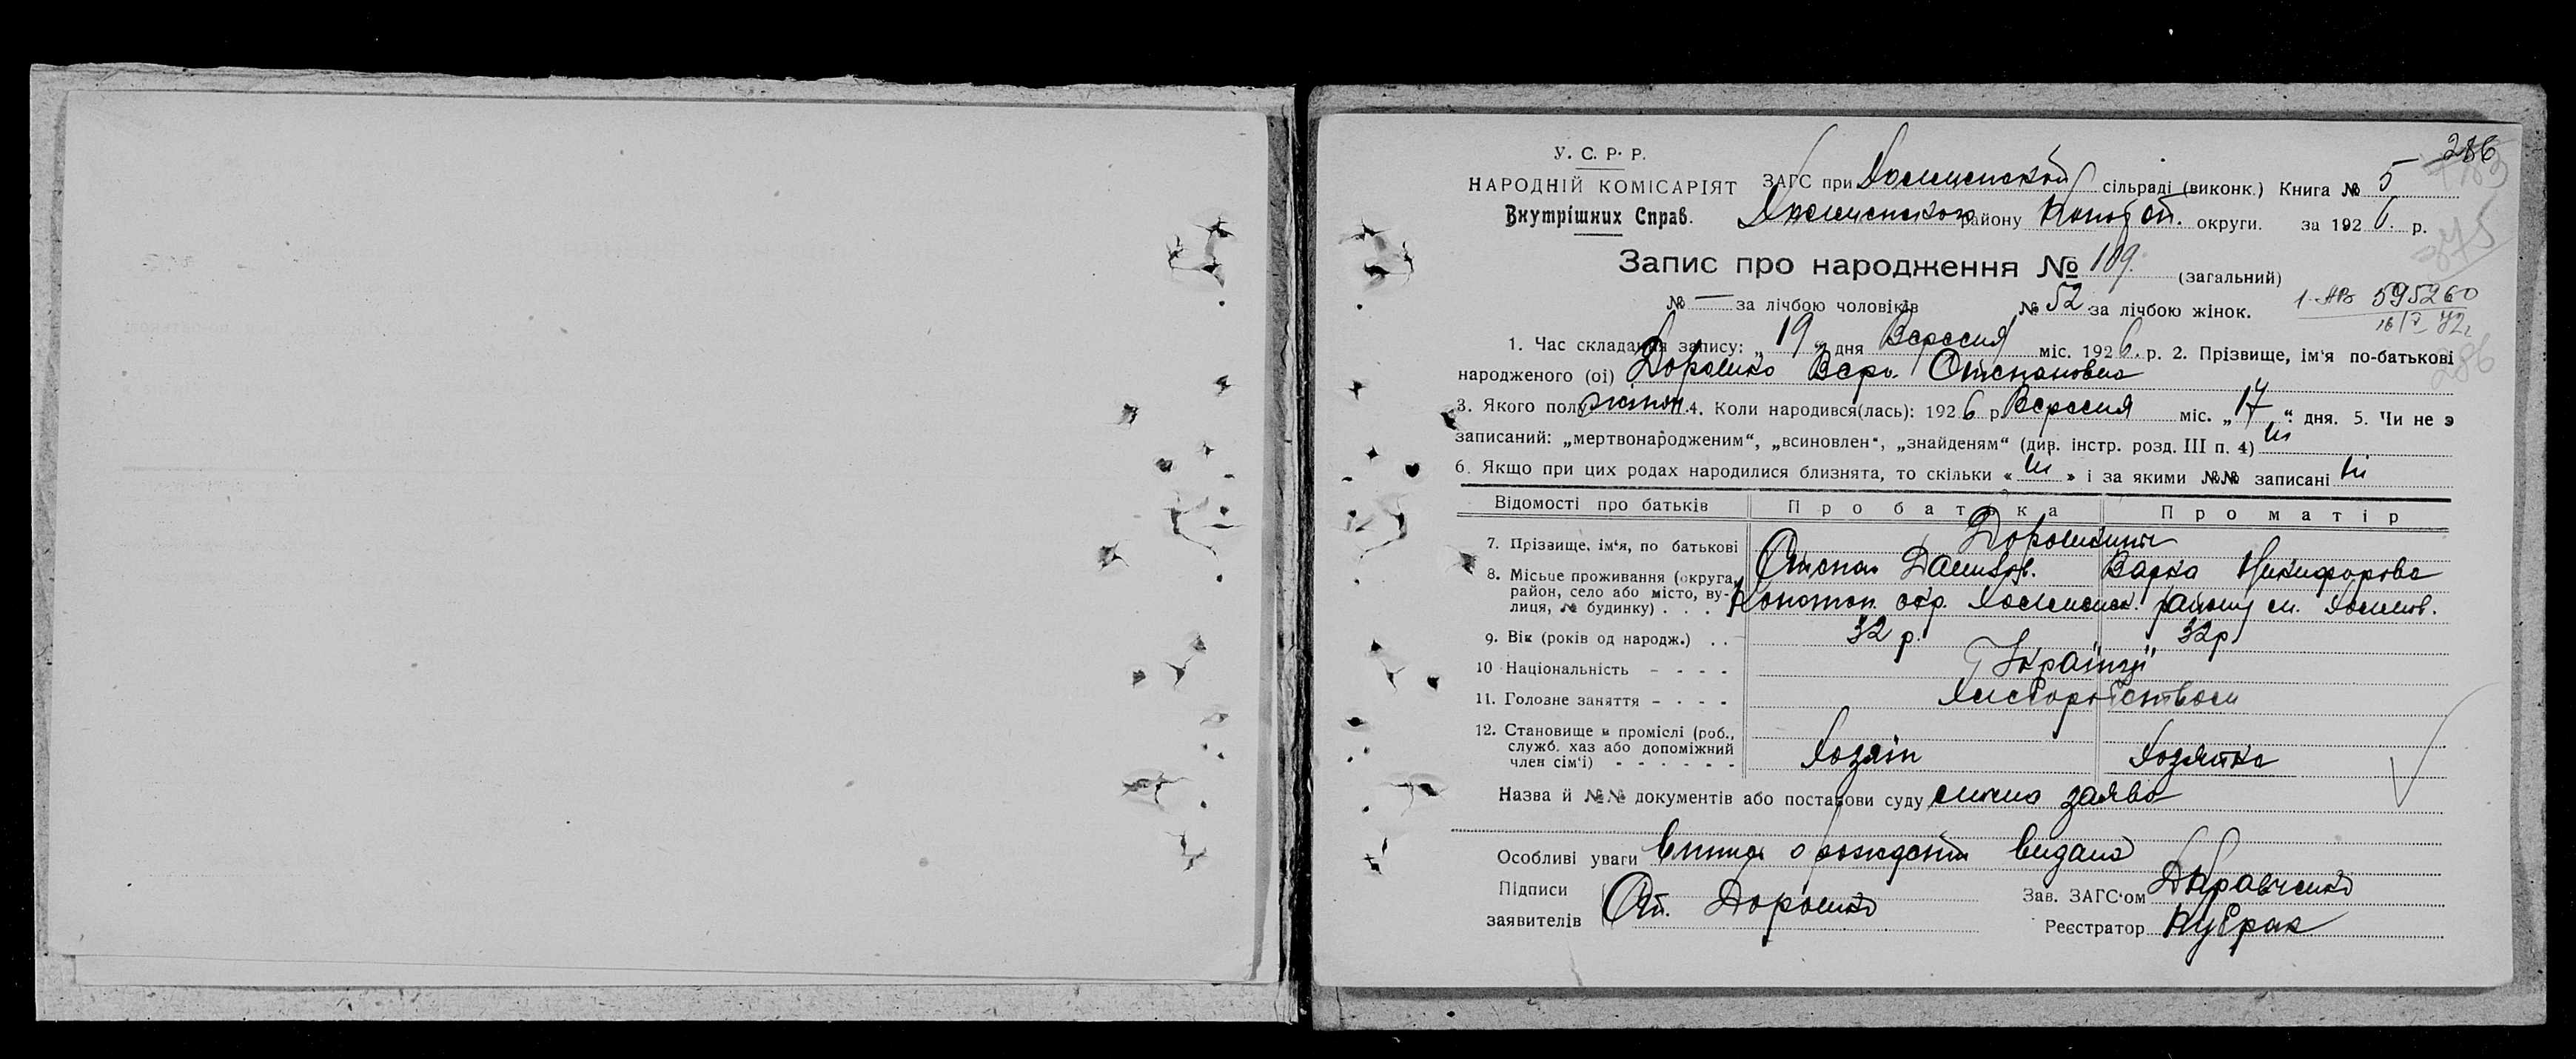 286
У. С. Р. Р.
НАРОДНІЙ КОМІСАРІЯТ
Внутрішних Справ.
ЗАГС при сільраді (виконк.) Книга № 5
району Конотоп. округи. за 1926. р.
275
Запис про народження № 109. (загальний)
№ — за лічбою чоловіків № 52 за лічбою жінок.
1-АВ 595260
72
1. Час складання запису: „19“ дня Вересня міс. 1926. р. 2. Прізвище, ім'я по-батькові
286
народженого (ої) Дорошко Вера Степановна
3. Якого полу жіноч. 4. Коли народився(лась): 1926 р. Вересня міс. „17“ дня. 5. Чи не э
записаний: „мертвонародженим“, „всиновлен“, „знайденям“ (див. інстр. розд. III п. 4) ні
6. Якщо при цих родах народилися близнята, то скільки « ні » і за якими №№ записані ні
Відомості про батьків Про батька Про матір
7. Прізвище, ім'я, по батькові
Степан Варка Никифорова
8. Місьце проживання (округа, район, село або місто, вулиця, № будинку) . . . Конотоп. окр. району
9. Вік (років од народж.) . . 32 р. 32 р
10 Національність - - - - Українці
11. Головне заняття - - - - Хліборобством
12. Становище в промислі (роб., служб. хаз або допоміжний член сім'ї) - - - - - - Хозяїн Хозяйка
Назва й №№ документів або постанови суду заява
Особливі уваги видана
Підписи заявителів Ст. Дорошко
Зав. ЗАГС'ом
Реєстратор